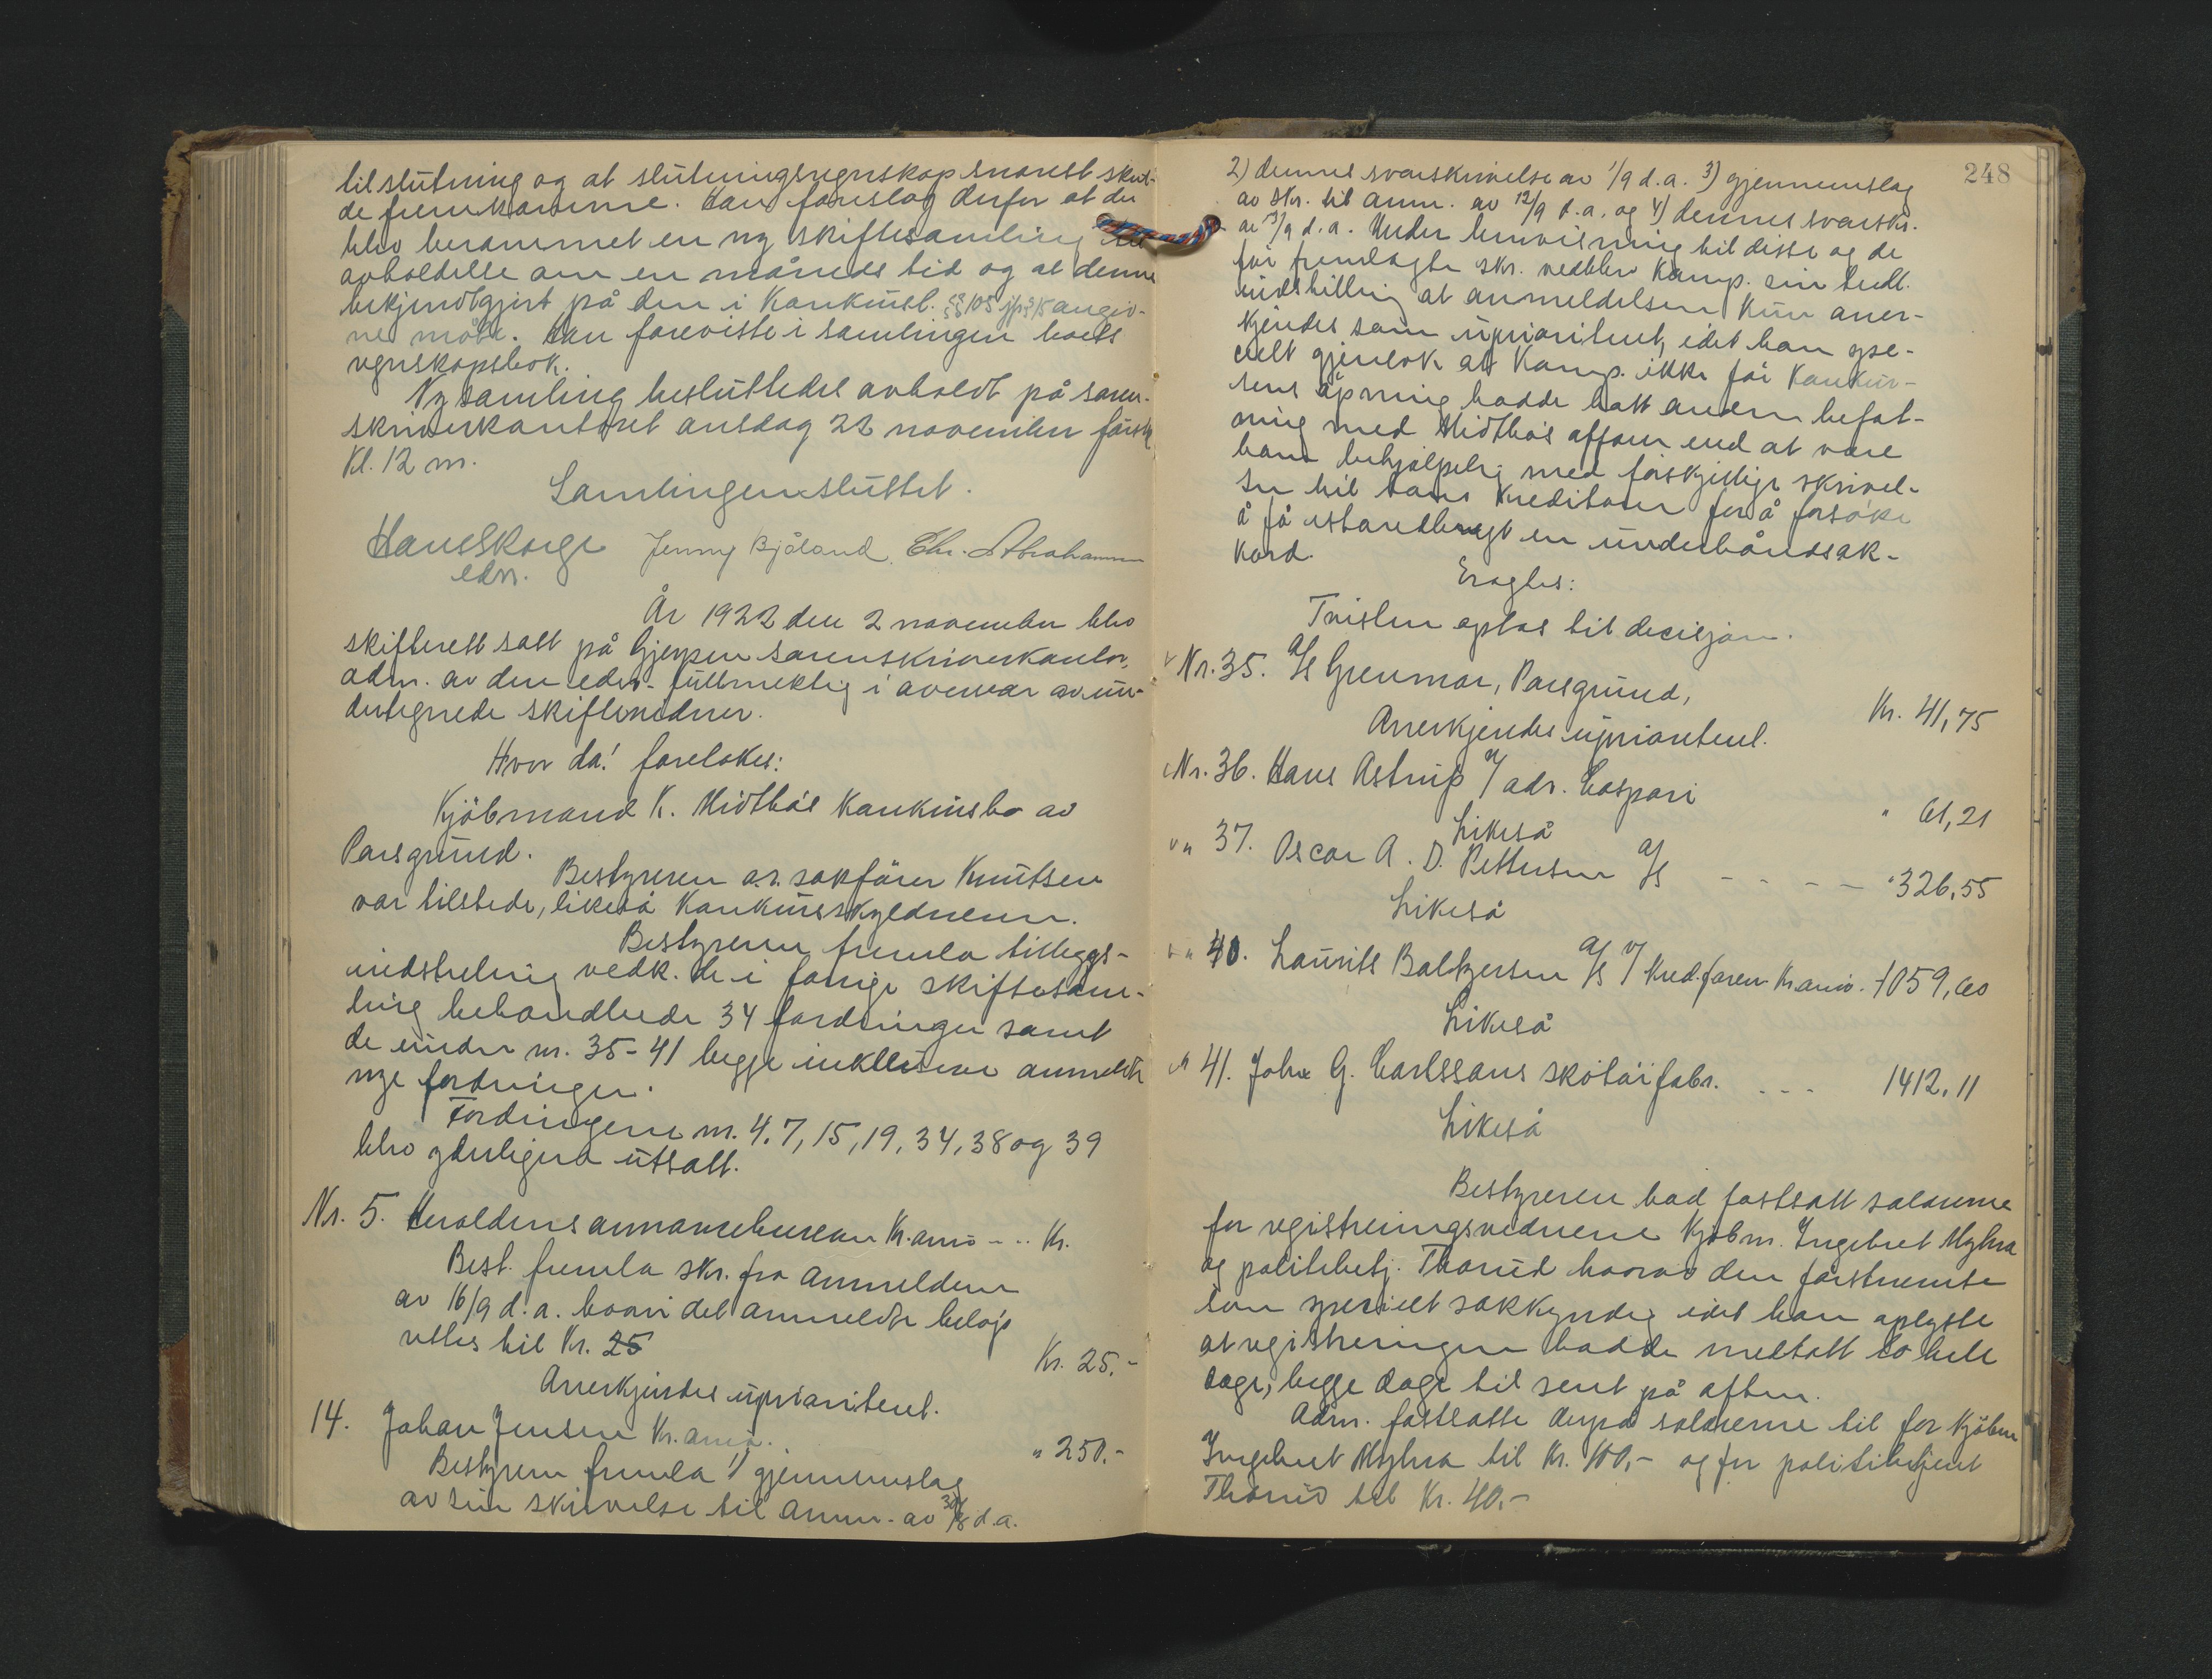 til slutning og at slutningsregnskap snarest skul-
de fremkomme. Han foreslog derfor at der
blev berammet en ny skiftesamling til
avholdelse om en måneds tid og at denne
bekjendtgjort på den i Konkursl. §§ 105 jfr. 15 angiv-
ne måte. Han foreviste i samlingen boets
regnskapsbok.
Ny samling besluttedes avholdt på soren-
skriverkontoret onsdag 22 november først
Kl. 12 m.
Samlingen sluttet.
Hans Skorge Jenny Bjåland. Chr. Abrahamsen
edsv.
År 1922 den 2 november blev
skifterett satt på Gjerpen sorenskriverkontor,
adm. av den edsv. fullmektig i overvær av un-
dertegnede skiftevidner.
Hvor da! foretokes:
Kjöbmand K. Midtbös Konkursbo av
Porsgrund.
Bestyreren o.r. sakfører Knutsen
var tilstede, likeså Konkursskyldneren.
Bestyreren fremla tilleggs-
indstilling vedk. de i forrige skiftesam-
ling behandlede 34 fordringer samt
de under nr. 35-41 begge inklusive anmeldte
nye fordringer.
Fordringene nr. 4, 7, 15, 19, 34, 38 og 39
blev ytterligere utsatt.
Nr. 5. Heroldens annoncebureau Kr.ania - - - Kr.
Best. fremla skr. fra anmelderen
av 16/9 d.a. hvori det anmeldte beløp
rettes til Kr. 25
Kr. 25,-
Anerkjendes uprioritert.
14. Johan Jensen Kr.ania.
" 250.-
Bestyreren fremla 1) gjennemslag
av sin skrivelse til anm. av 30/8 d.a.
248
2) dennes svarskrivelse av 1/9 d.a. 3) gjennemslag
av skr. til anm. av 12/9 d.a. og 4) dennes svarskr.
av 13/9 d.a. Under henvisning til disse og de
før fremlagte skr. vedblev Komp. sin tidl.
indstilling at anmeldelsen kun aner-
kjendes som uprioritert, idet han spe-
cielt gjentok at Komp. ikke før Konkur-
sens åpning hadde hatt anden befat-
ning med Midtbös affære end at være
ham behjælpelig med forskjellige skrivel-
ser til hans Kreditorer for å forsøke
å få istandbragt en underhåndsak-
kord.
Eragtes:
Tvisten optas til decisjon.
Nr. 35. A/S Grenmar, Porsgrund,
Kr. 41,75
Anerkjendes uprioritert.
Nr. 36. Hans Astrup v/ adv. Caspari
" 61,21
Likeså
" 37. Oscar A. D. Pettersen A/S - - - - " 326,55
Likeså
" 40. Laurits Baltzersen A/S v/ Kred.foren. Kr.ania. 1059,60
Likeså
" 41. John G. Carlssons skotöifabr. - - - 1412,11
Likeså
Bestyreren bad fastsatt salærerne
for registreringsvidnene Kjöbm. Ingebret Myhra
og politibetj. Thorud hvorav den førstnevnte
som specielt sakkyndig idet han oplyste
at registreringen hadde medtatt to hele
dage, begge dage til sent på aften.
Adm. fastsatte derpå salærerne til for Kjöbm
Ingebret Myhra til Kr. 100,- og for politibetjent
Thorud til Kr. 40.-